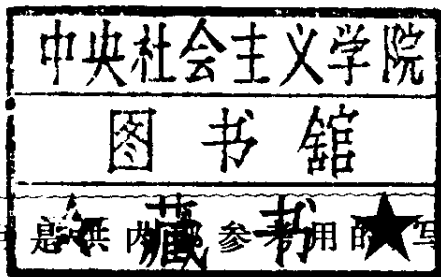 中央社会主义学院
图书舘
★藏书★
是供内部参考用的写